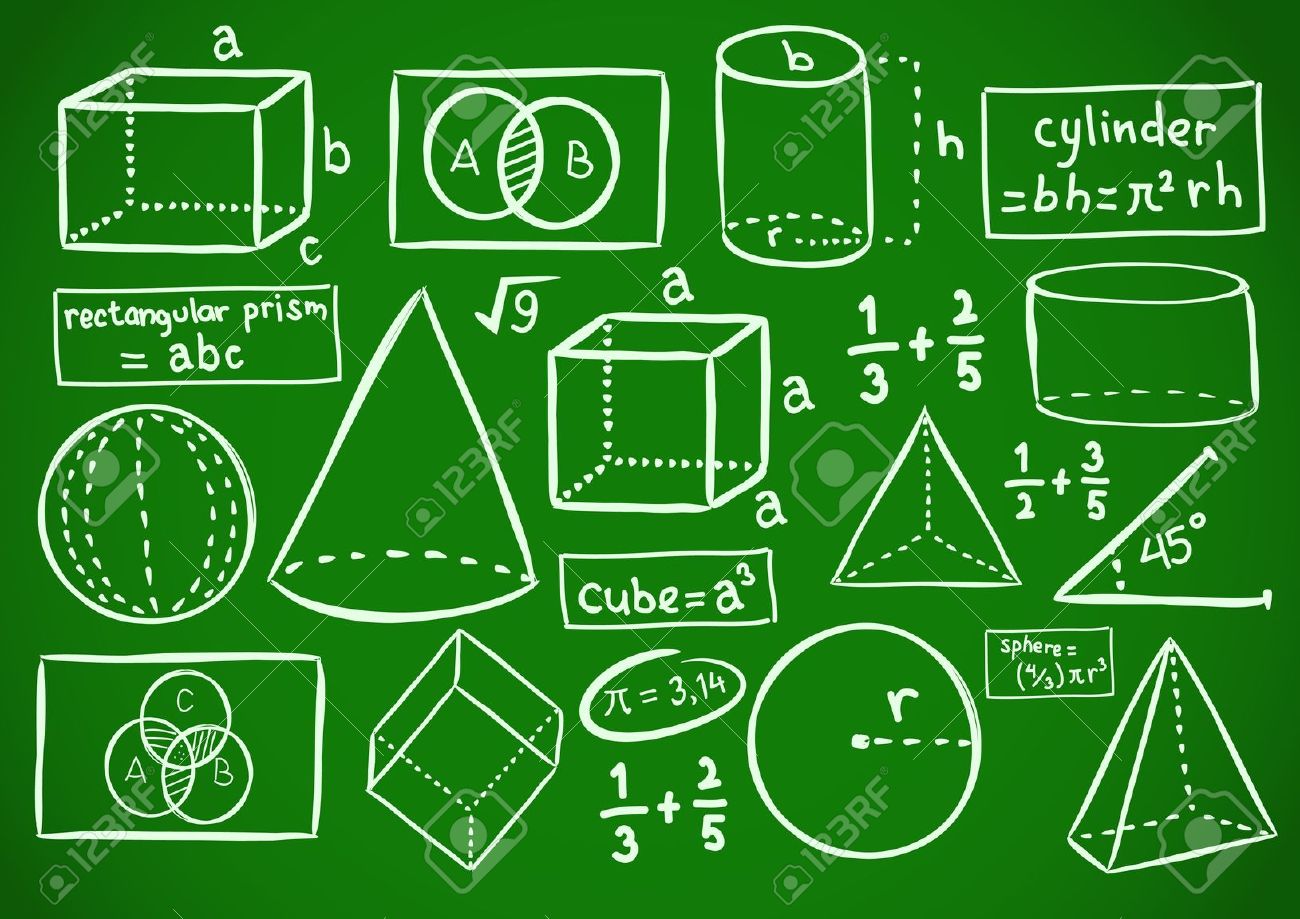 a
b
c
A B
b
h
r
cylinder
=bh=π²rh
rectangular prism
= abc
√9
a
a
a
1/3 + 2/5
1/2 + 3/5
45°
cube=a³
C
A B
π = 3,14
1/3 + 2/5
r
sphere=
(4/3)πr³
123RF